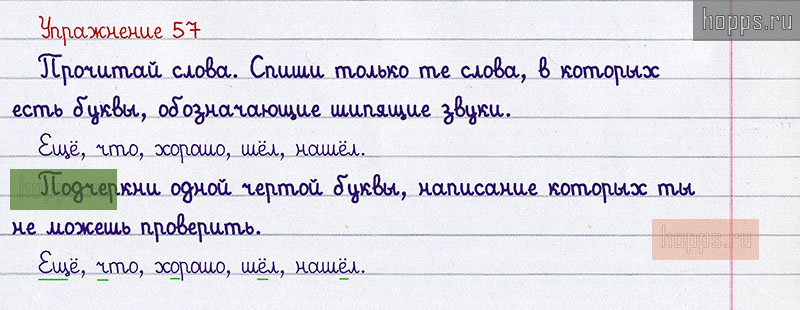 hopps.ru
Упражнение 57
Прочитай слова. Спиши только те слова, в которых
есть буквы, обозначающие шипящие звуки.
Ещё, что, хорошо, шёл, нашёл.
Подчеркни одной чертой буквы, написание которых ты
не можешь проверить.
hopps.ru
Ещё, что, хорошо, шёл, нашёл.